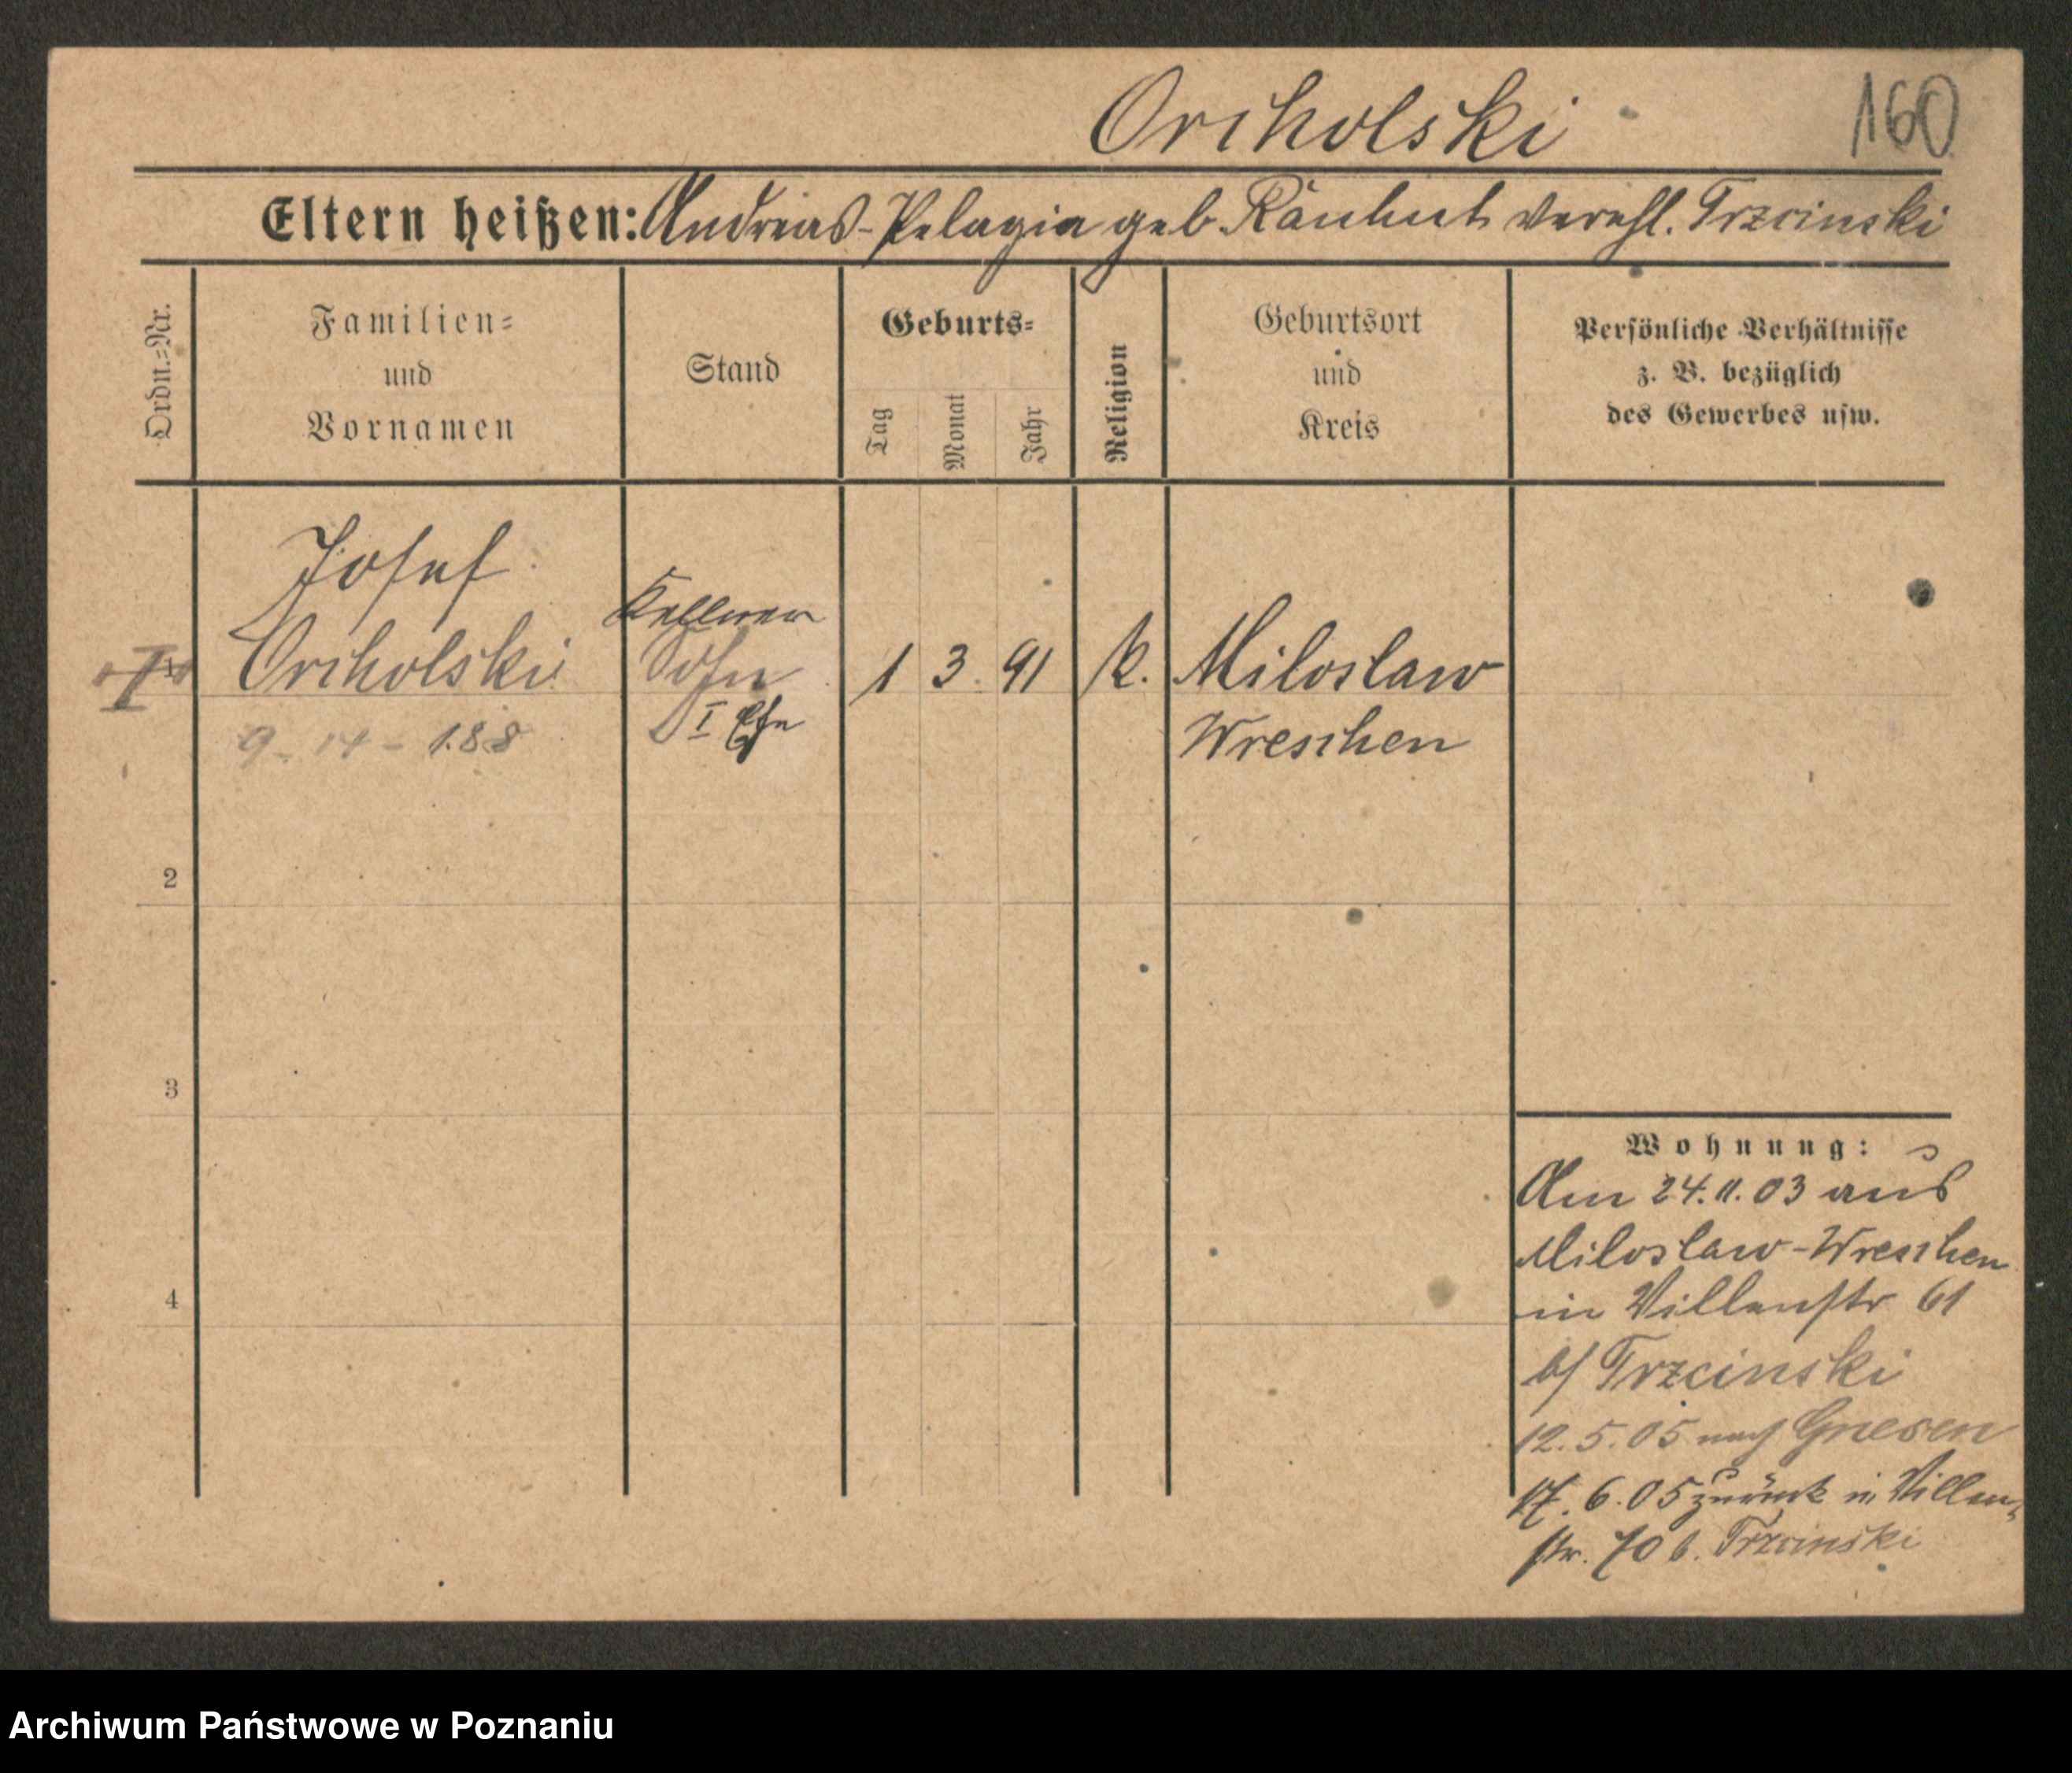 Orcholski 160
Eltern heißen: Andreas - Pelagia geb. Rauhut verehl. Trzcinski
Ordn.=Nr.
Familien=
und
Vornamen
Stand
Geburts=
Tag
Monat
Jahr
Religion
Geburtsort
und
Kreis
Persönliche Verhältnisse
z. B. bezüglich
des Gewerbes usw.
Josef
Kellner
I Orcholski Sohn 1 3. 91 k. Miloslaw
9 - 14 - 188 I Ehe Wreschen
2
3
4
Wohnung:
Am 24.11.03 aus
Miloslaw-Wreschen
in Villenstr 61
b/ Trzcinski
12.5.05 nach Gnesen
17.6.05 zurück in Villen-
str. 70 b. Trzcinski
Archiwum Państwowe w Poznaniu